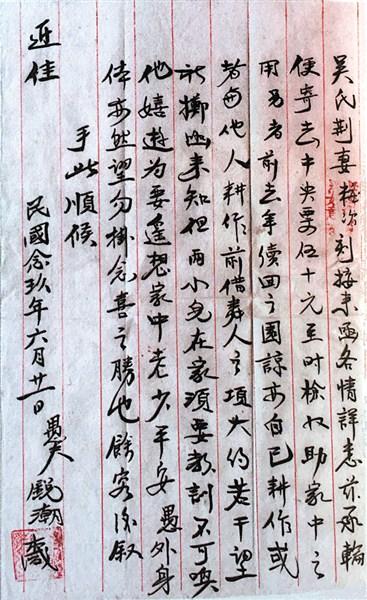 吴氏荆妻妝次刻接来函各情詳悉茲承輪
便寄去中央票伍十元至时檢收助家中之
用另者前去年續回之園諒亦自己耕作或
者由他人耕作前借鄰人之項大约若干望
祈擲函来知但両小兒在家須要教訓不可嗅
他嬉遊為要遥想家中老少平安愚外身
体亦然望勿掛念喜之勝也餘容後叙
手此順候
近佳
民國念玖年六月廿一日愚夫殿潮